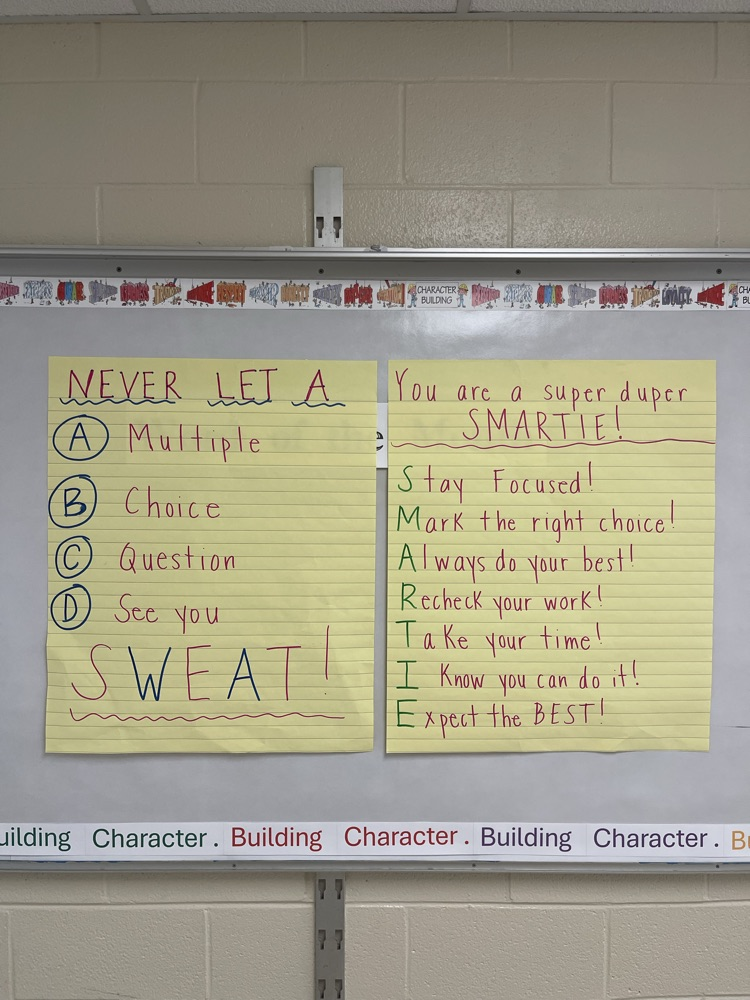 CHARACTER
BUILDING
LOYALTY
CHA
BU
NEVER LET A
A Multiple
B Choice
C Question
D See you
SWEAT!
e
You are a super duper
SMARTIE!
Stay Focused!
Mark the right choice!
Always do your best!
Recheck your work!
Take your time!
I Know you can do it!
Expect the BEST!
uilding Character. Building Character. Building Character. Bu